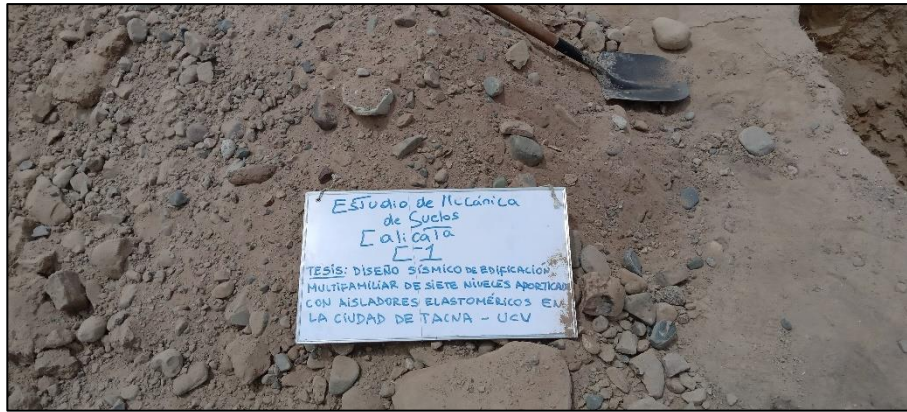 Estudio de Mecánica
de Suelos
Calicata
C-1
TESIS: DISEÑO SÍSMICO DE EDIFICACIÓN
MULTIFAMILIAR DE SIETE NIVELES APORTICADO
CON AISLADORES ELASTOMÉRICOS EN
LA CIUDAD DE TACNA - UCV